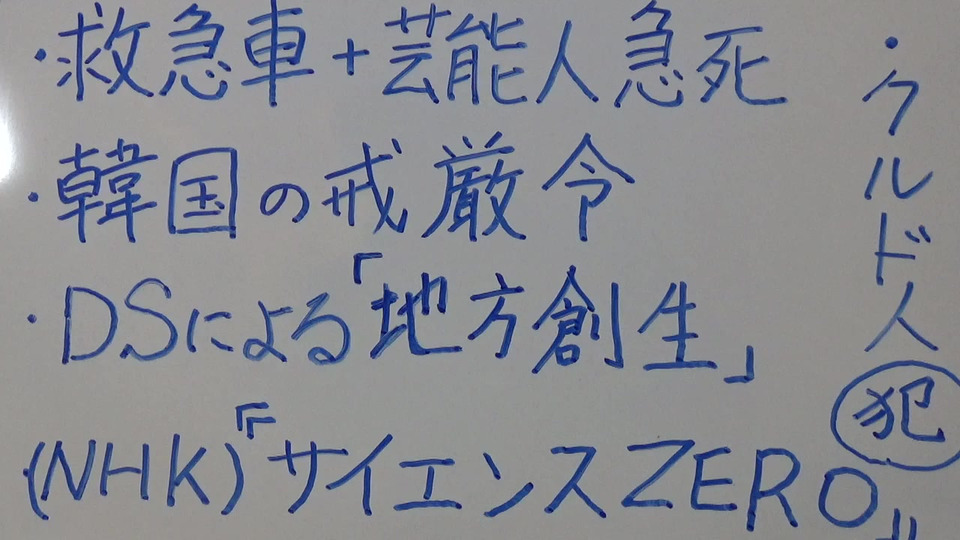 ・救急車+芸能人急死
・韓国の戒厳令
・DSによる「地方創生」
(NHK)『サイエンスZERO』
・クルド人犯